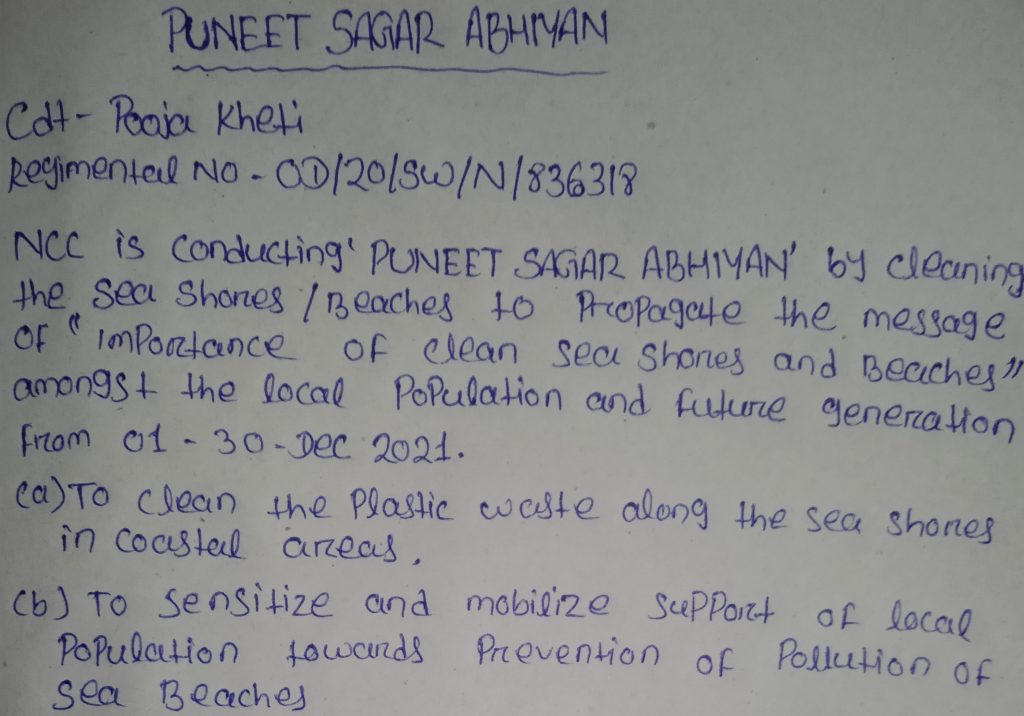 PUNEET SAGAR ABHIYAN
Cdt - Pooja Kheti
Regimental NO - OD/20/SW/N/836318
NCC is conducting 'PUNEET SAGAR ABHIYAN' by cleaning
the sea shores / Beaches to Propagate the message
of "importance of clean sea shores and Beaches"
amongst the local Population and future generation
from 01 - 30 - Dec 2021.
(a) To clean the Plastic waste along the sea shores
in coastal areas.
(b) To sensitize and mobilize support of local
Population towards Prevention of Pollution of
sea Beaches